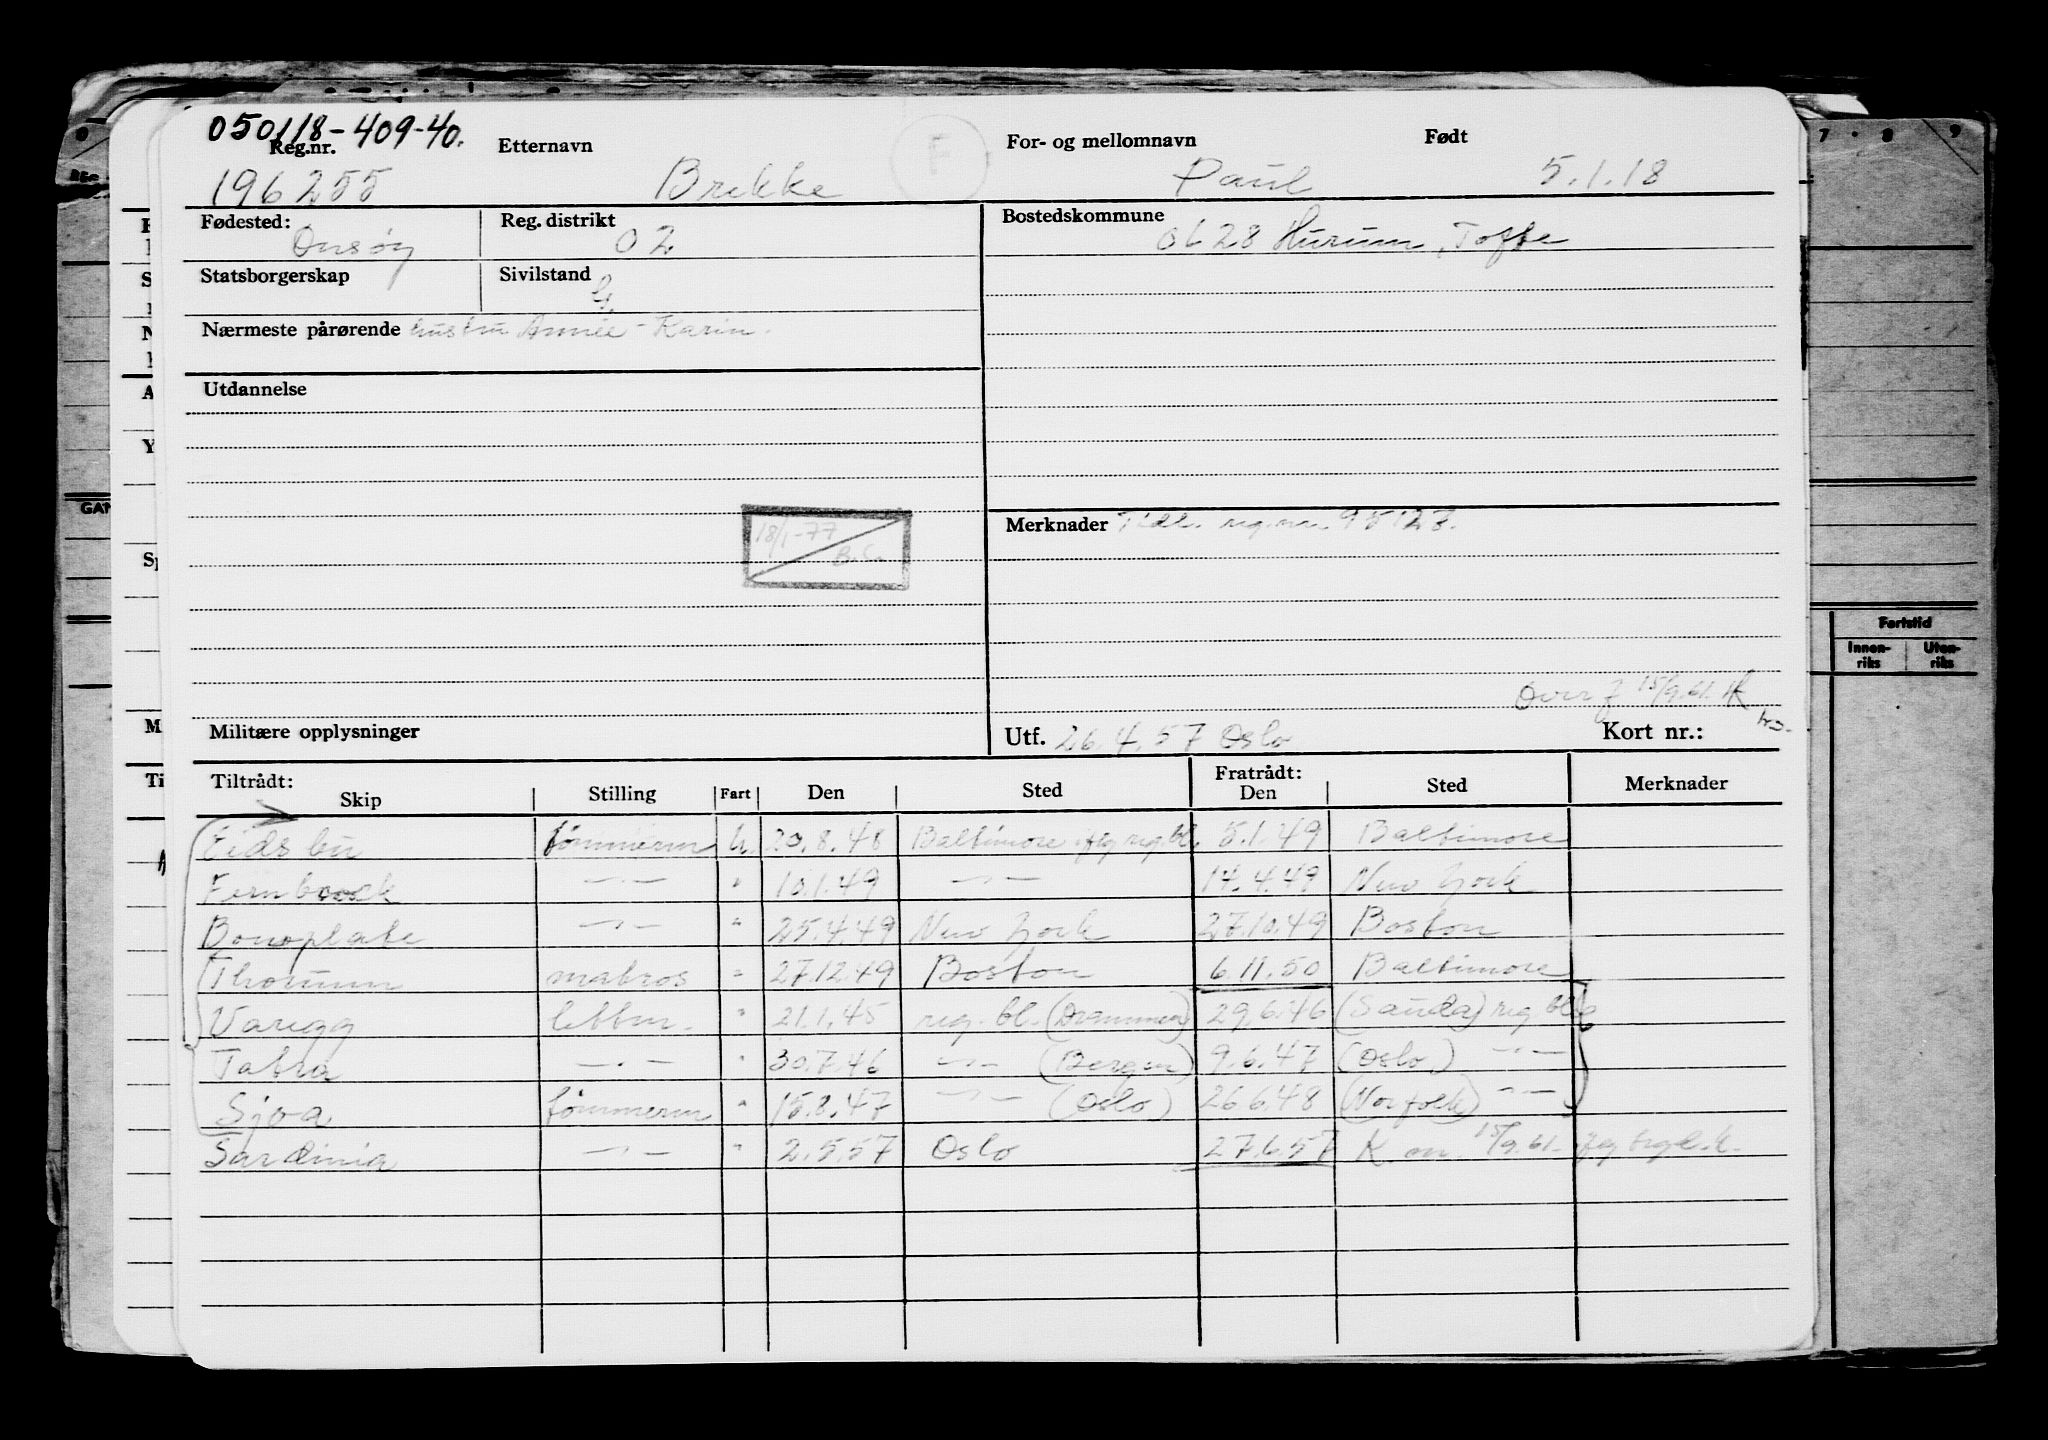 050118-409-40.
Reg.nr. Etternavn F For- og mellomnavn Født
196255 Brekke Paul 5.1.18
Fødested: Onsøy Reg. distrikt 02 Bostedskommune 0628 Hurum, Tofte
Statsborgerskap Sivilstand G.
Nærmeste pårørende hustru Annie-Karin.
Utdannelse
18/1-77 Merknader Tidl. reg.nr. 95123.
15/9.61.
Militære opplysninger Utf. 26.4.57 Oslo Kort nr.:
Tiltrådt: Fratrådt:
Skip Stilling Fart Den Sted Den Sted Merknader
Eidsbu tømmerm U. 20.8.48 Baltimore ifg reg.bl. 5.1.49 Baltimore
Fernbrook —·— " 10.1.49 —·— 14.4.49 New York
Bonoplate —·— " 25.4.49 New York 27.10.49 Boston
Thorunn matros " 27.12.49 Boston 6.11.50 Baltimore
Varegg lettm. " 21.1.45 reg. bl. (Drammen) 29.6.46 (Sauda) reg bl.
Tatra —·— " 30.7.46 —·— (Bergen) 9.6.47 (Oslo.) —·—
Sjoa tømmerm " 15.8.47 —·— (Oslo) 26.6.48 (Norfolk) —·—
Sardinia —·— " 2.5.57 Oslo 27.6.57 15/9.61. ifg
Fartstid
Innen-
riks
Uten-
riks
7 . 8 . 9